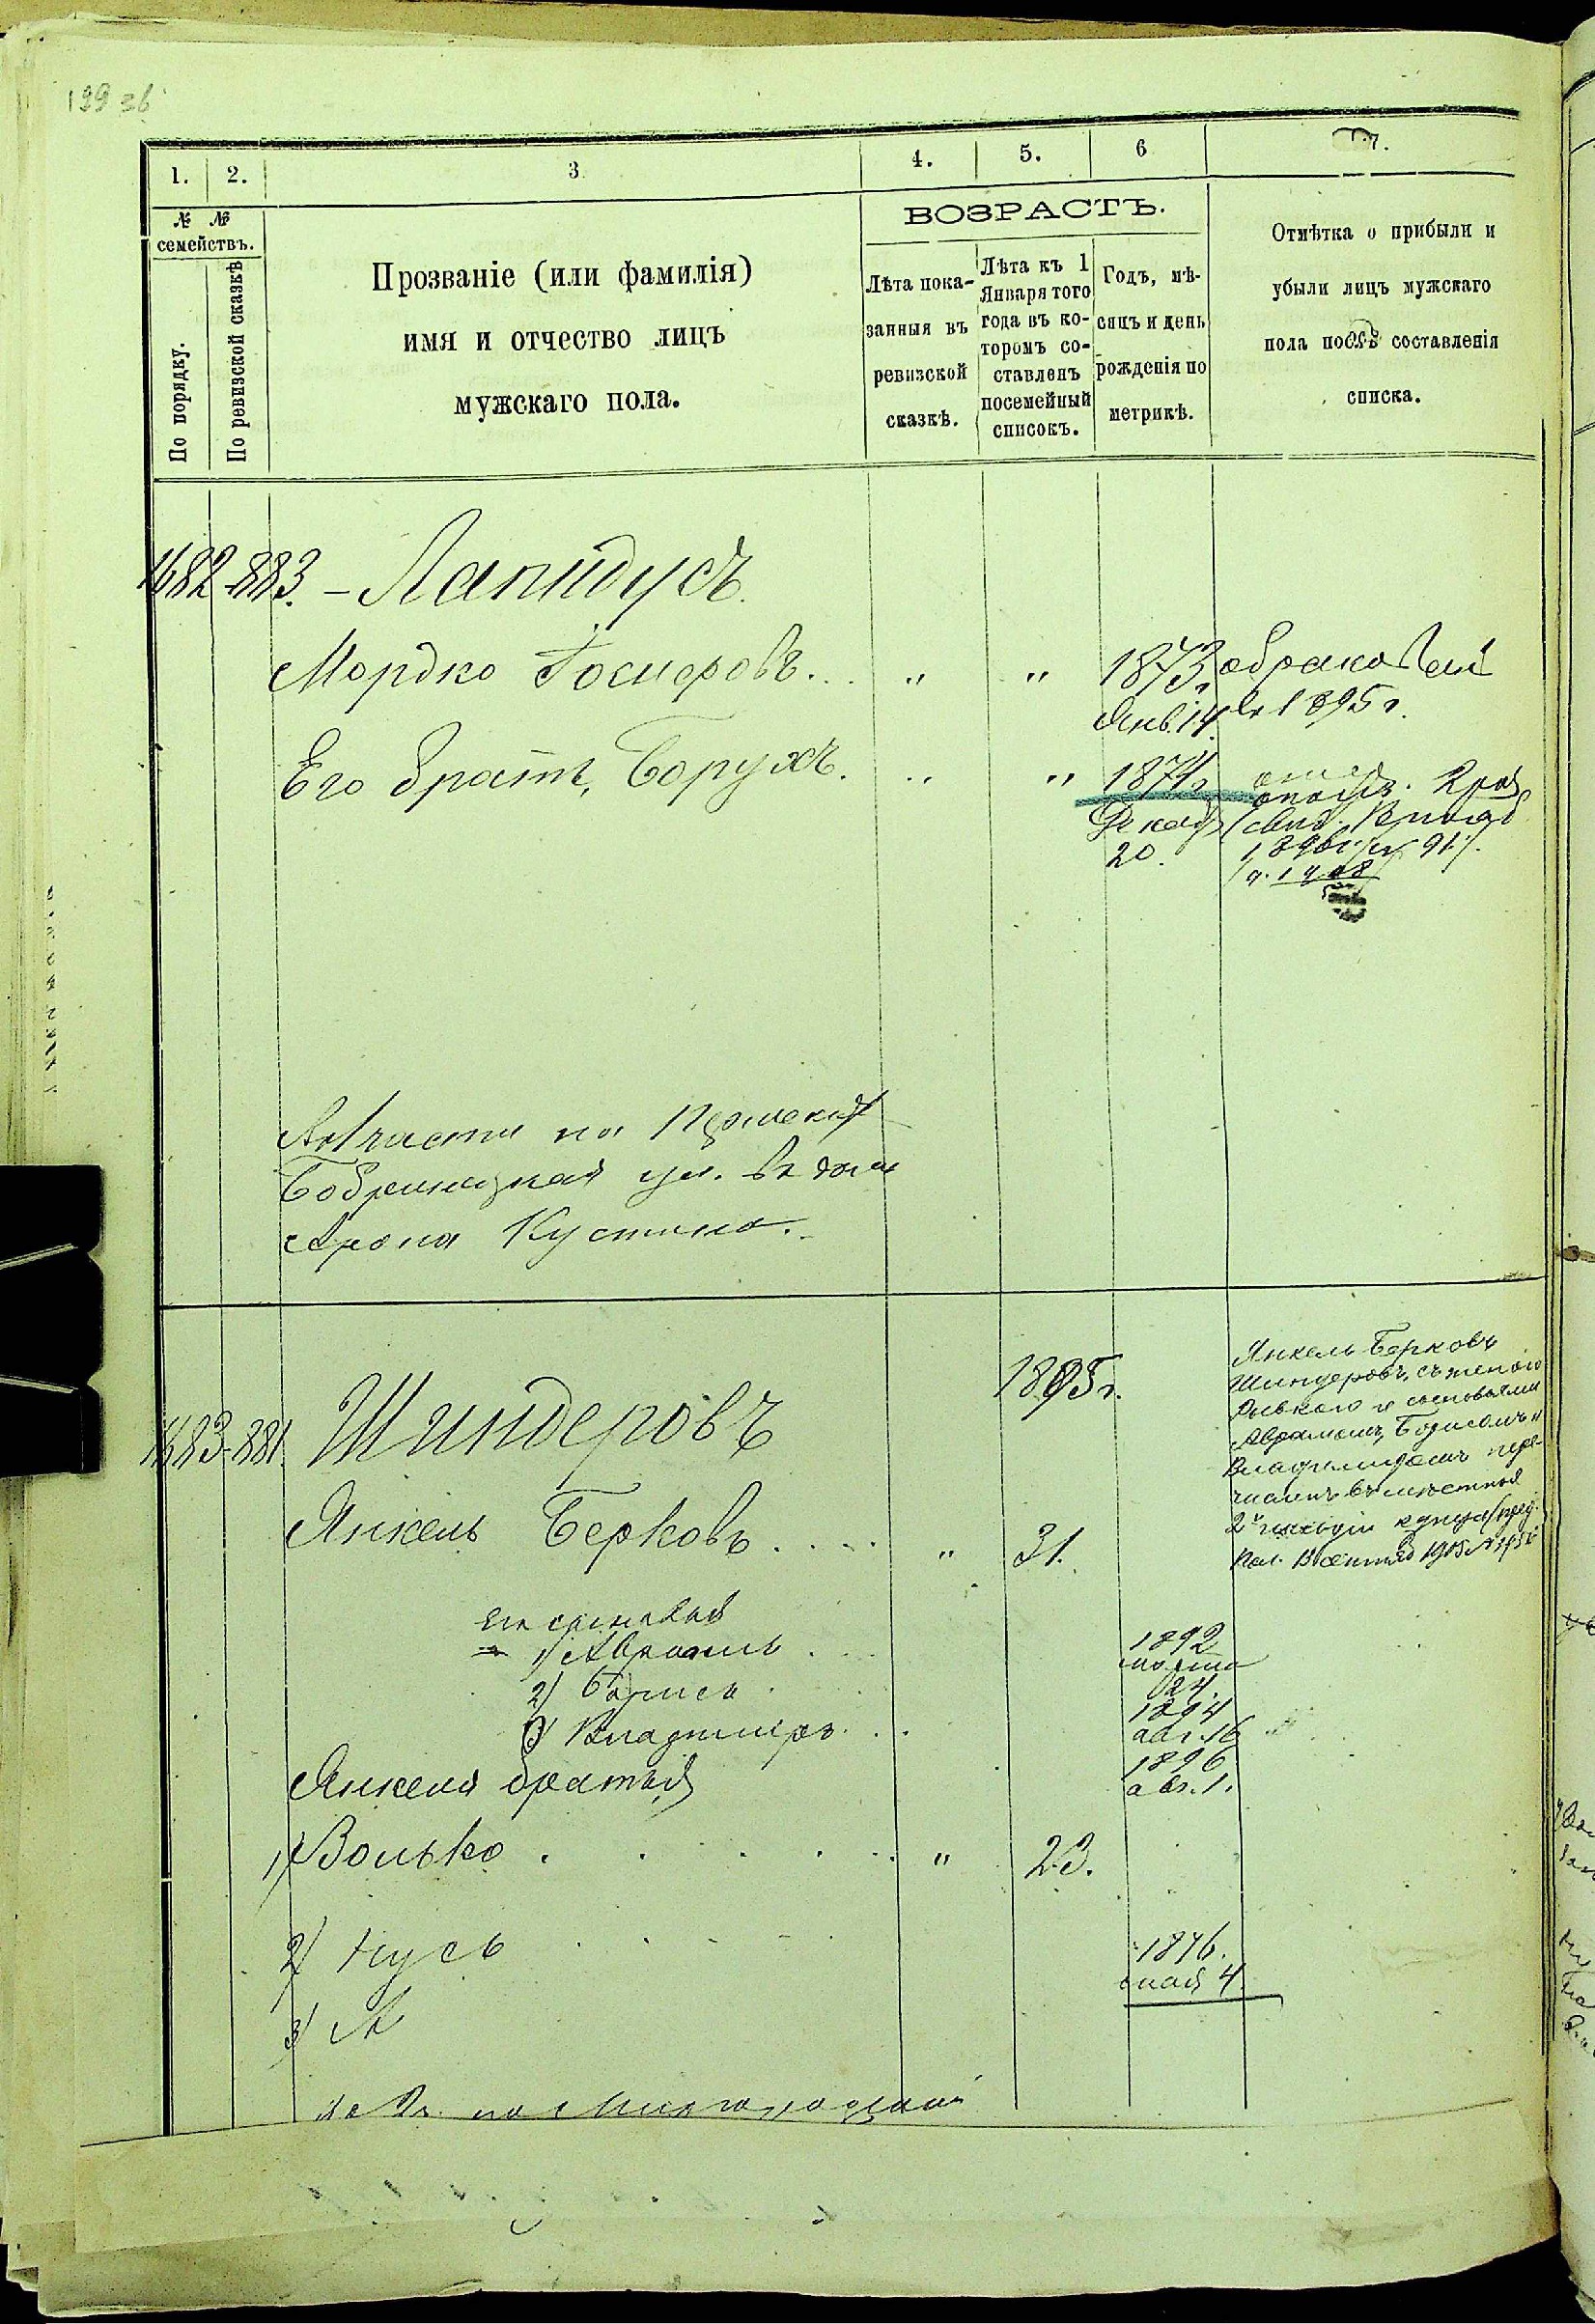 199 об
1. 2. 3 4. 5. 6 7.
№ №
семействъ.
По порядку.
По ревизской сказкѣ
Прозваніе (или фамилія)
имя и отчество лицъ
мужскаго пола.
ВОЗРАСТЪ.
Лѣта пока-
занныя въ
ревизской
сказкѣ.
Лѣта къ 1
Января того
года въ ко-
торомъ со-
ставленъ
посемейный
списокъ.
Годъ, мѣ-
сяцъ и день
рожденія по
метрикѣ.
Отмѣтка о прибыли и
убыли лицъ мужскаго
пола послѣ составленія
списка.
1682 883. - Лапидусъ.
Мордко " " 1873г.
Янв. 14. въ 1895 г.
Его братъ, Борухъ. " " 1874г
Декаб
20.
части на
Бобринецкая ул. въ домѣ
Арона Кустина.
1895г.
1683 881. Шиндеровъ
Янкель Берковъ .... " 31.
Янкель Берковъ
Шиндеровъ, съ женою
Ривкою и сыновьями
Аврамомъ, Борисомъ и
Владиміромъ пере-
численъ въ мѣстныя
2й гильдіи купцы
Его сыновья
1) Аврамъ . . . 1892
марта
24.
2) Борисъ . 1894
авг. 16
3) Владиміръ . . . 1896
авг. 1.
Янкеля братья
1) Волько . . . . . " 23.
2) Нусь . . . . 1876.
мая 4.
3) А